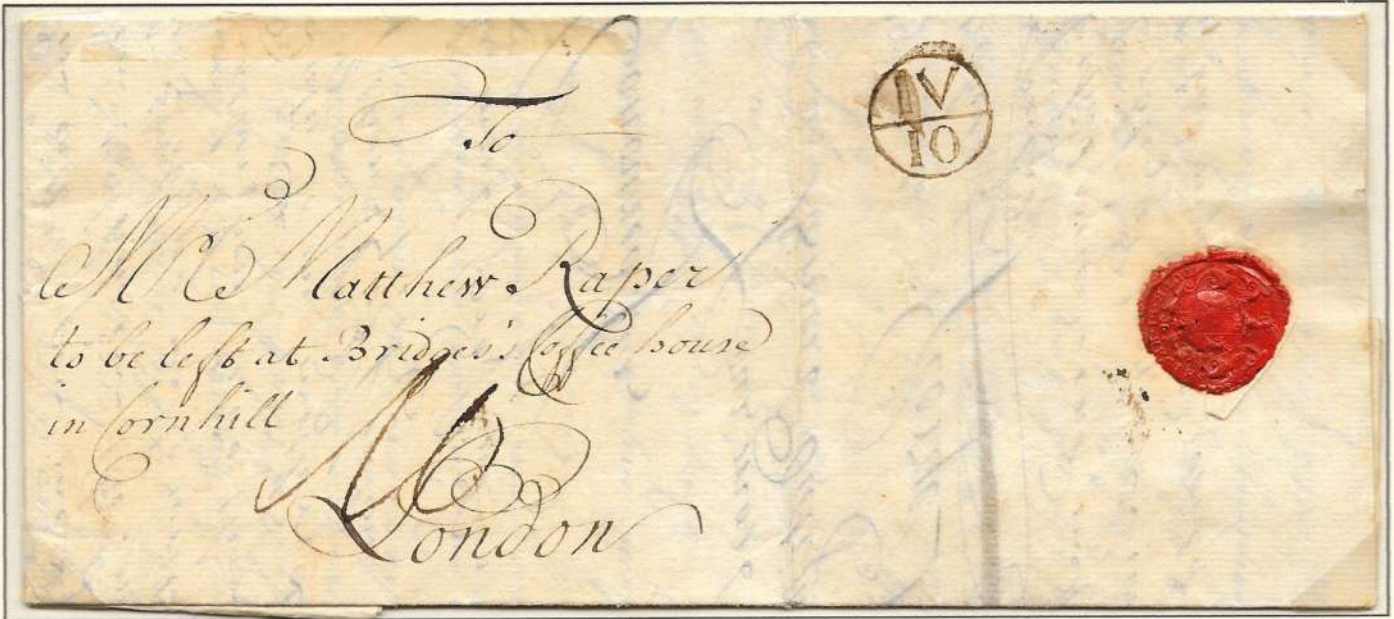 To
Mr Matthew Raper
to be left at Bridge's Coffee house
in Cornhill
London
IV
10